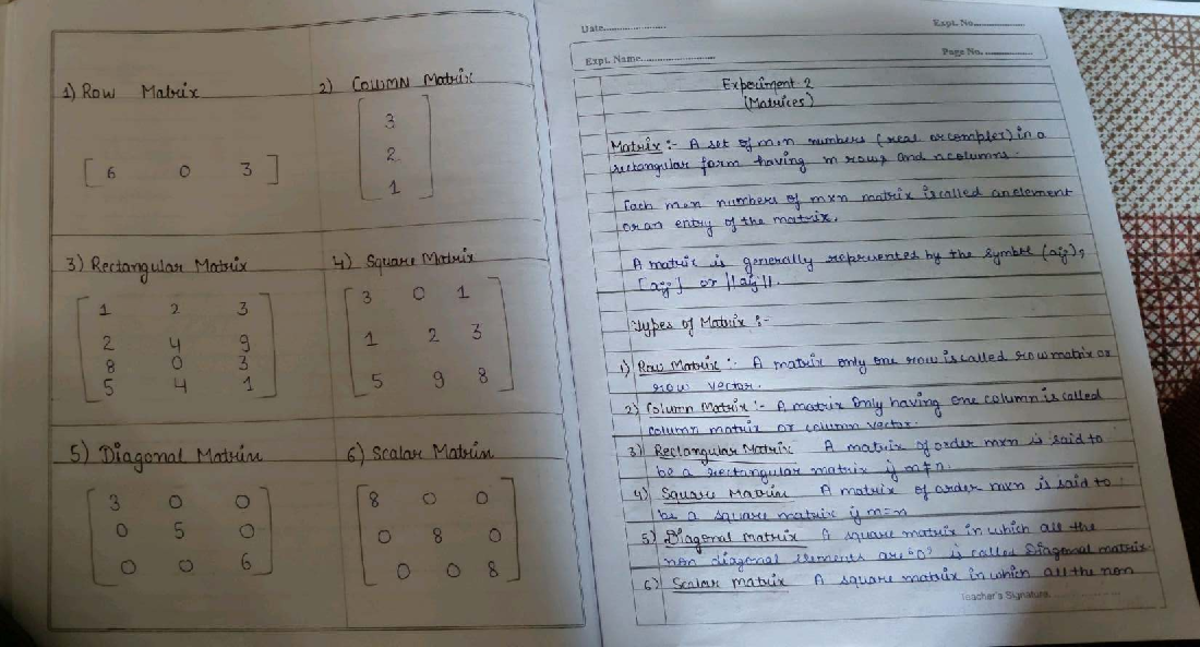 1) Row Matrix
[ 6 0 3 ]
2) Column Matrix
3
2
1
3) Rectangular Matrix
1 2 3
2 4 9
8 0 3
5 4 1
4) Square Matrix
3 0 1
1 2 3
5 9 8
5) Diagonal Matrix
3 0 0
0 5 0
0 0 6
6) Scalar Matrix
8 0 0
0 8 0
0 0 8
Date
Expt. No.
Expt. Name
Page No.
Experiment 2
(Matrices)
Matrix :- A set of m.n numbers (real or complex) in a
rectangular form having m rows and n columns.
Each m.n numbers of mxn matrix is called an element
or an entry of the matrix.
A matrix is generally represented by the symbol (aij),
[aij] or ||aij||.
Types of Matrix :-
1) Row Matrix :- A matrix only one row is called row matrix or
row vector.
2) Column Matrix :- A matrix only having one column is called
column matrix or column vector.
3) Rectangular Matrix A matrix of order mxn is said to
be a rectangular matrix if m≠n.
4) Square Matrix A matrix of order mxn is said to
be a square matrix if m=n
5) Diagonal matrix A square matrix in which all the
non diagonal elements are "0" is called Diagonal matrix.
6) Scalar matrix A square matrix in which all the non
Teacher's Signature